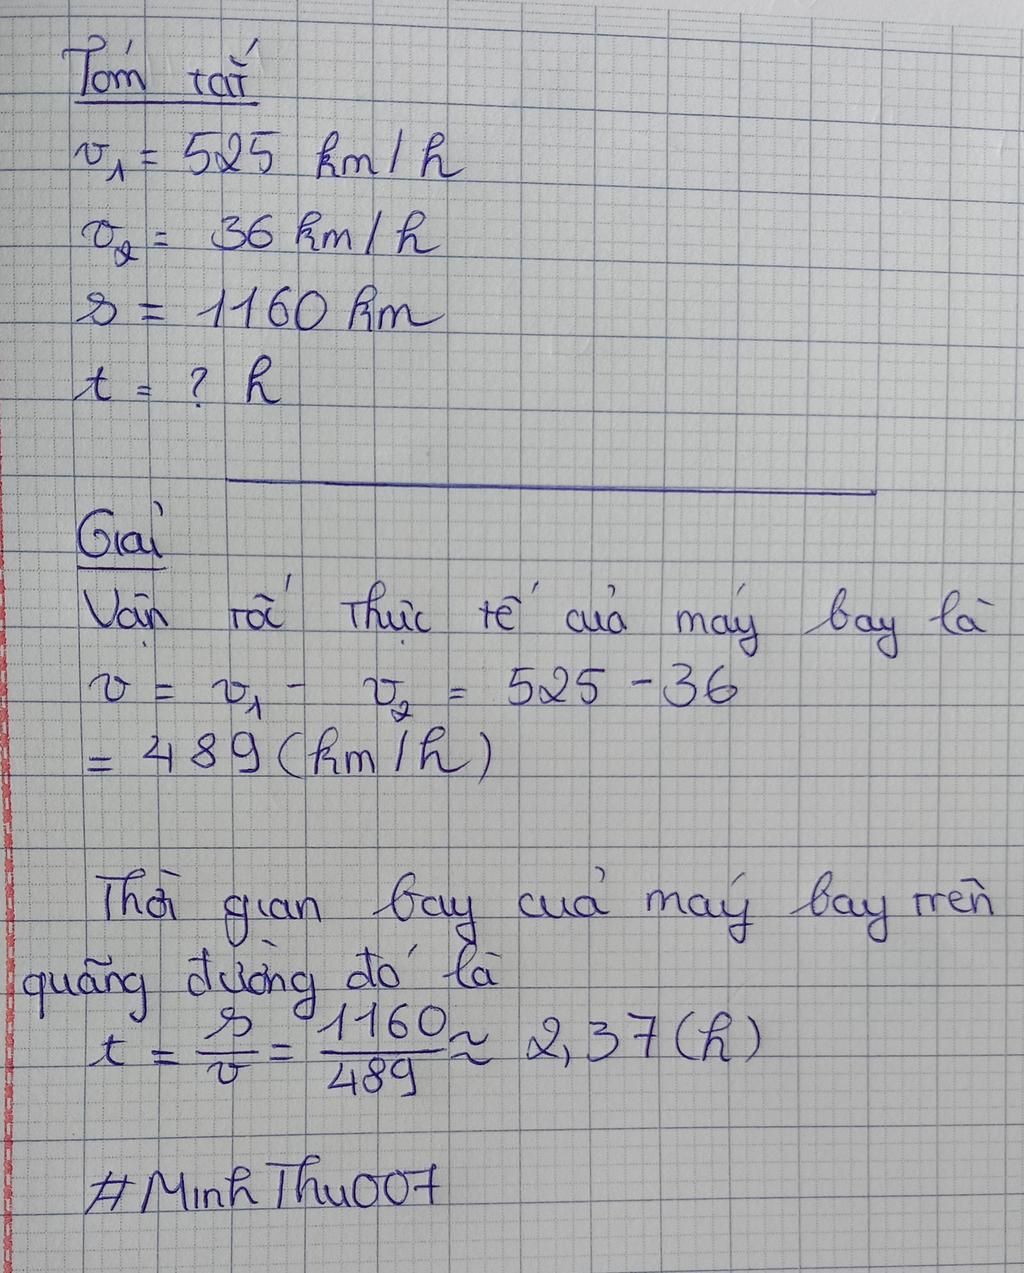 Tóm tắt
v₁ = 525 km/h
v₂ = 36 km/h
s = 1160 km
t = ? h
Giải
Vận tốc thực tế của máy bay là
v = v₁ - v₂ = 525 - 36
= 489 (km/h)
Thời gian bay của máy bay trên
quãng đường đó là
t = s/v = 1160/489 ≈ 2,37 (h)
#MinhThu007